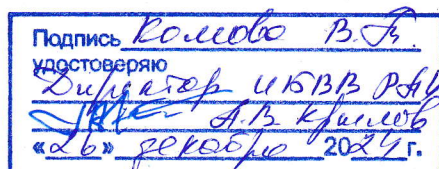 Подпись Комова В.Т.
удостоверяю
Директор ИБВВ РАН
А.В. Крылов
«26» декабря 2024 г.